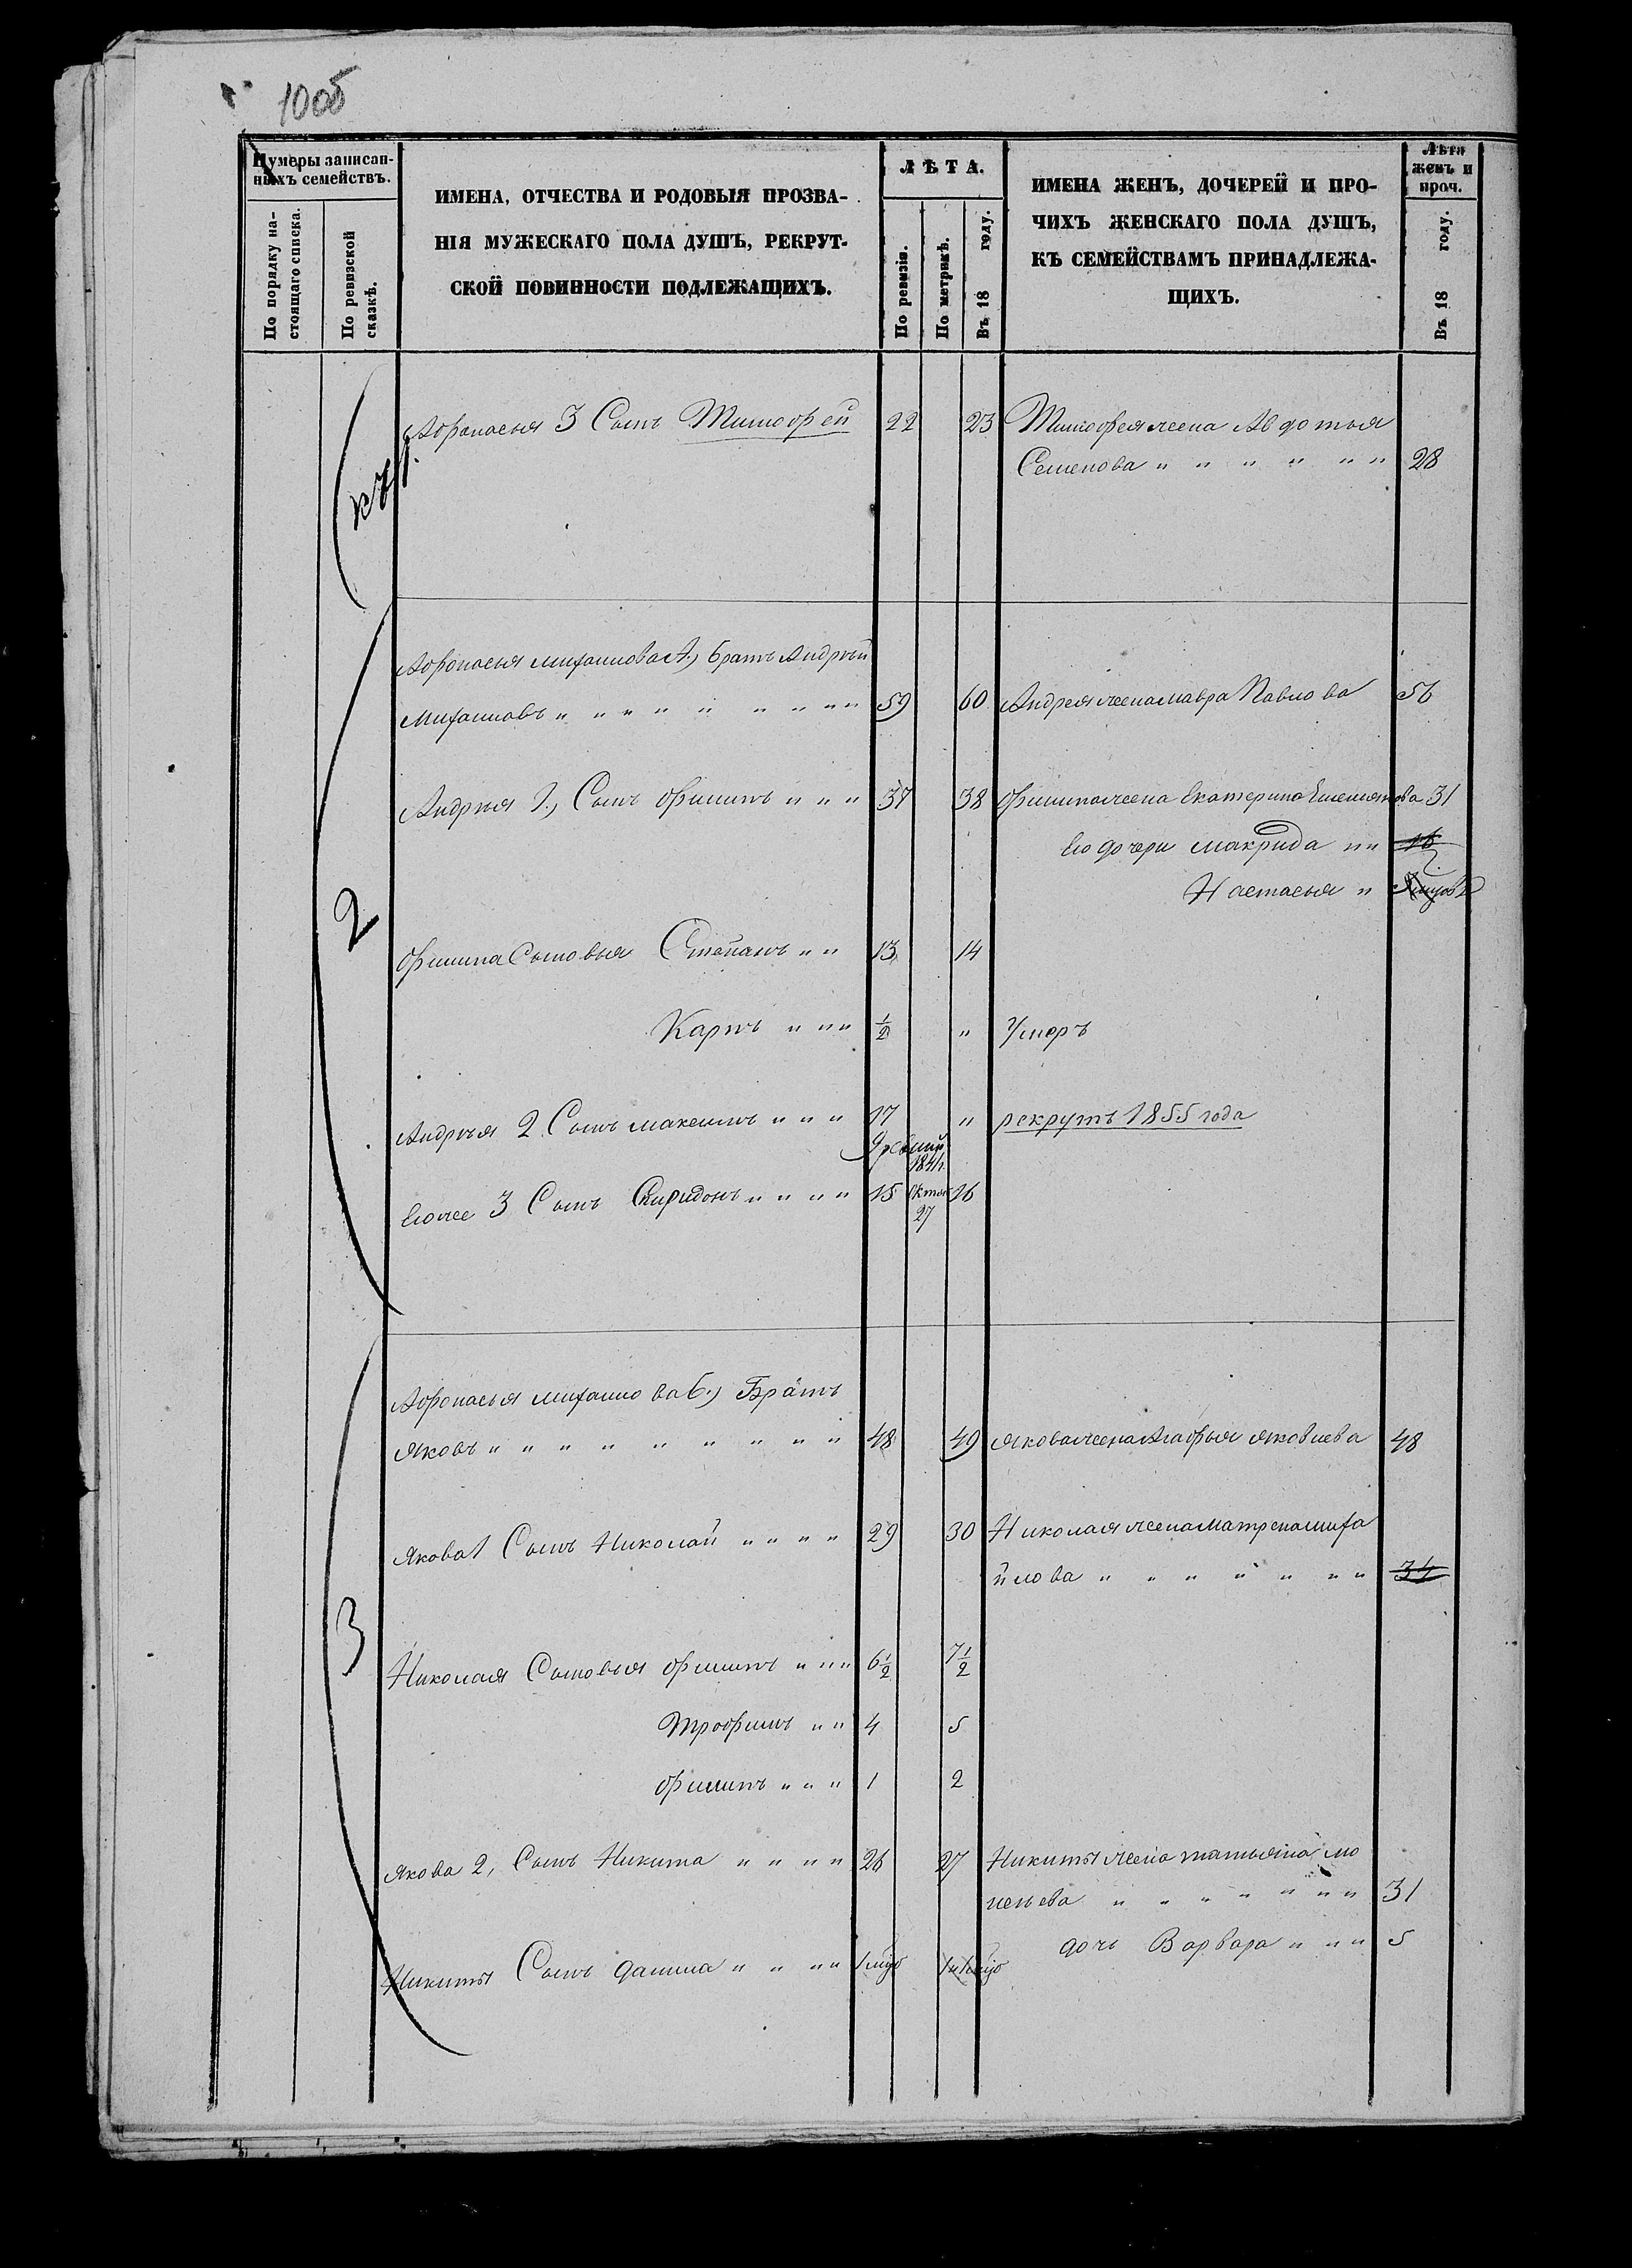 10об
Нумеры записан-
ныхъ семействъ.
По порядку на-
стоящаго списка.
По ревизской
сказкѣ.
ИМЕНА, ОТЧЕСТВА И РОДОВЫЯ ПРОЗВА-
НІЯ МУЖЕСКАГО ПОЛА ДУШЪ, РЕКРУТ-
СКОЙ ПОВИННОСТИ ПОДЛЕЖАЩИХЪ.
ЛѢТА.
По ревизіи.
По метрикѣ.
Въ 18 году.
ИМЕНА ЖЕНЪ, ДОЧЕРЕЙ И ПРО-
ЧИХЪ ЖЕНСКАГО ПОЛА ДУШЪ,
КЪ СЕМЕЙСТВАМЪ ПРИНАДЛЕЖА-
ЩИХЪ.
Лѣта
женъ и
проч.
Въ 18 году.
къ 1.
Афонасья 3 Сынъ Тимофей 22 23 Тимофея жена Авдотья
Семенова " " " " " " 28
2
Афонасья Михайлова А., братъ Андрѣй
Михайловъ " " " " " " " " " 59 60 Андрея жена Мавра Павлова 56
Андрѣя 1., Сынъ Филипъ " " " 37 38 Филипа жена Екатерина Емельянова 31
Его дочери Макрида " " 16
Настасья "
Филипа Сыновья Степанъ " " 13 14
Карпъ " " " 1/2 " Умеръ
Андрѣя 2 Сынъ Максимъ " " " 17 " рекрутъ 1855 года
1841
Егоже 3 Сынъ Спиридонъ " " " " 15 Октя 16
27
3
Афонасья Михайлова Б., Братъ
Яковъ " " " " " " " " " 48 49 Якова жена Агафья Яковлева 48
Якова 1 Сынъ Николай " " " " 29 30 Николая жена Матрена Миха
йлова " " " " " " " 34
Николая Сыновья Филипъ " " " 6 1/2 7 1/2
Трофимъ " " 4 5
Филипъ " " " 1 2
Якова 2, Сынъ Никита " " " " 26 27 Никиты жена Татьяна
" " " " " " " 31
дочь Варвара " " " 5
Никиты Сынъ Данила " " " "